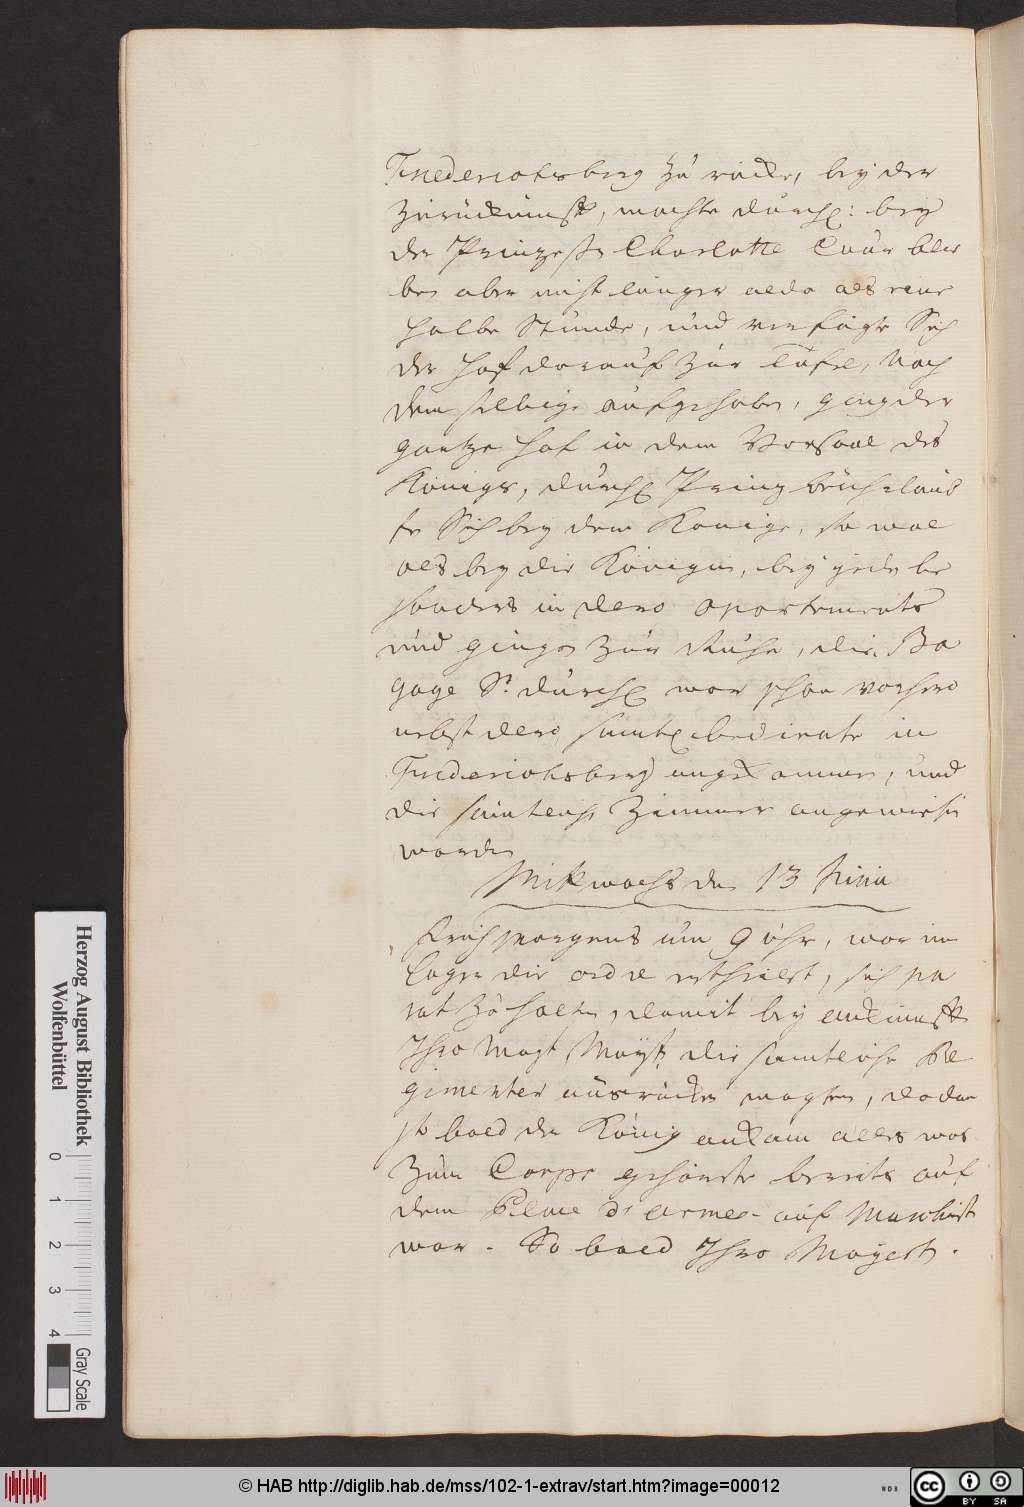 Friederichsberg zu rücke, bey der
Zurückunft, machte durchl: bey
der Princessin Charlotte Cour blie
ben aber nicht länger alda als eine
halbe Stunde, und verfügte Sich
der Hof darauf zur Tafel, Nach
dem selbige aufgehoben, ging der
gantze Hof in dem Vorsaal des
Königs, durchl Printz beuhrlaub
te Sich bey dem Konige, so wol
als bey die Königin, bey jeden be
sonders in dero apartements
und gingen zur Ruhe, die Ba
gage Sr. durchl war schon vorhero
nebst dero sämtl bediente in
Friederichsberg angekommen, und
die sämtlich Zimmer angewiesen
worden
Mittwochs den 13 Junii
Früh morgens um 9 uhr, war im
Lager die ordre ertheilet, sich pa
rat zu halten, damit bey ankunft
Ihro Mayt, die sämtliche Re
gimenter ausrücken mogten, dodan
so bald der König ankam alles was
zum Corps gehörete bereits auf
dem Place d'armes auf Marchirt
war. So bald Ihro Mayest.
Herzog August Bibliothek
Wolfenbüttel
0 1 2 3 4
Gray Scale
© HAB http://diglib.hab.de/mss/102-1-extrav/start.htm?image=00012
WDB
cc BY SA